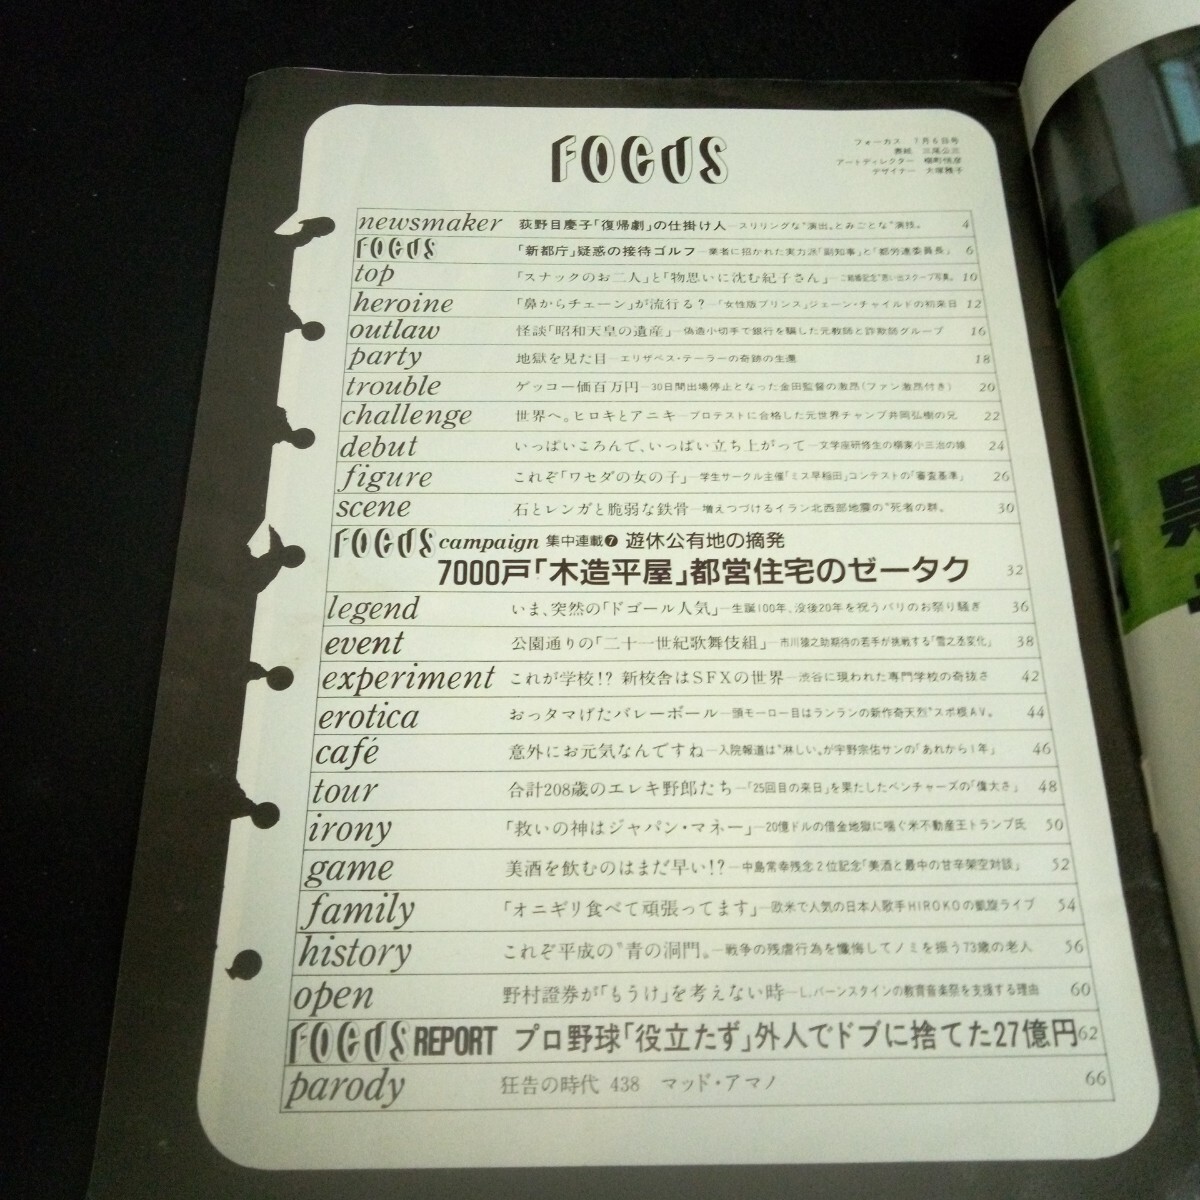 FOCUS
フォーカス 7月6日号
表紙 三尾公三
アートディレクター
デザイナー 大塚雅子
newsmaker 荻野目慶子「復帰劇」の仕掛け人—スリリングな“演出„とみごとな“演技„ 4
FOCUS 「新都庁」疑惑の接待ゴルフ—業者に招かれた実力派「副知事」と「都労連委員長」 6
top 「スナックのお二人」と「物思いに沈む紀子さん」—ご結婚記念“思い出スクープ写真„ 10
heroine 「鼻からチェーン」が流行る?—「女性版プリンス」ジェーン・チャイルドの初来日 12
outlaw 怪談「昭和天皇の遺産」—偽造小切手で銀行を騙した元教師と詐欺師グループ 16
party 地獄を見た目—エリザベス・テーラーの奇跡の生還 18
trouble ゲッコー価百万円—30日間出場停止となった金田監督の激昂(ファン激昂付き) 20
challenge 世界へ。ヒロキとアニキ—プロテストに合格した元世界チャンプ井岡弘樹の兄 22
debut いっぱいころんで、いっぱい立ち上がって—文学座研修生の柳家小三治の娘 24
figure これぞ「ワセダの女の子」—学生サークル主催「ミス早稲田」コンテストの「審査基準」 26
scene 石とレンガと脆弱な鉄骨—増えつづけるイラン北西部地震の“死者の群„ 30
FOCUS campaign 集中連載❼ 遊休公有地の摘発
7000戸「木造平屋」都営住宅のゼータク 32
legend いま、突然の「ドゴール人気」—生誕100年、没後20年を祝うパリのお祭り騒ぎ 36
event 公園通りの「二十一世紀歌舞伎組」—市川猿之助期待の若手が挑戦する「雪之丞変化」 38
experiment これが学校!? 新校舎はSFXの世界—渋谷に現われた専門学校の奇抜さ 42
erotica おっタマげたバレーボール—頭モーロー目はランランの新作奇天烈“スポ根AV„ 44
café 意外にお元気なんですね—入院報道は“淋しい„が宇野宗佑サンの「あれから1年」 46
tour 合計208歳のエレキ野郎たち—「25回目の来日」を果たしたベンチャーズの「偉大さ」 48
irony 「救いの神はジャパン・マネー」—20億ドルの借金地獄に喘ぐ米不動産王トランプ氏 50
game 美酒を飲むのはまだ早い!?—中島常幸残念2位記念「美酒と最中の甘辛架空対談」 52
family 「オニギリ食べて頑張ってます」—欧米で人気の日本人歌手HIROKOの凱旋ライブ 54
history これぞ平成の“青の洞門„—戦争の残虐行為を懺悔してノミを振う73歳の老人 56
open 野村證券が「もうけ」を考えない時—L.バーンスタインの教育音楽祭を支援する理由 60
FOCUS REPORT プロ野球「役立たず」外人でドブに捨てた27億円 62
parody 狂告の時代 438 マッド・アマノ 66